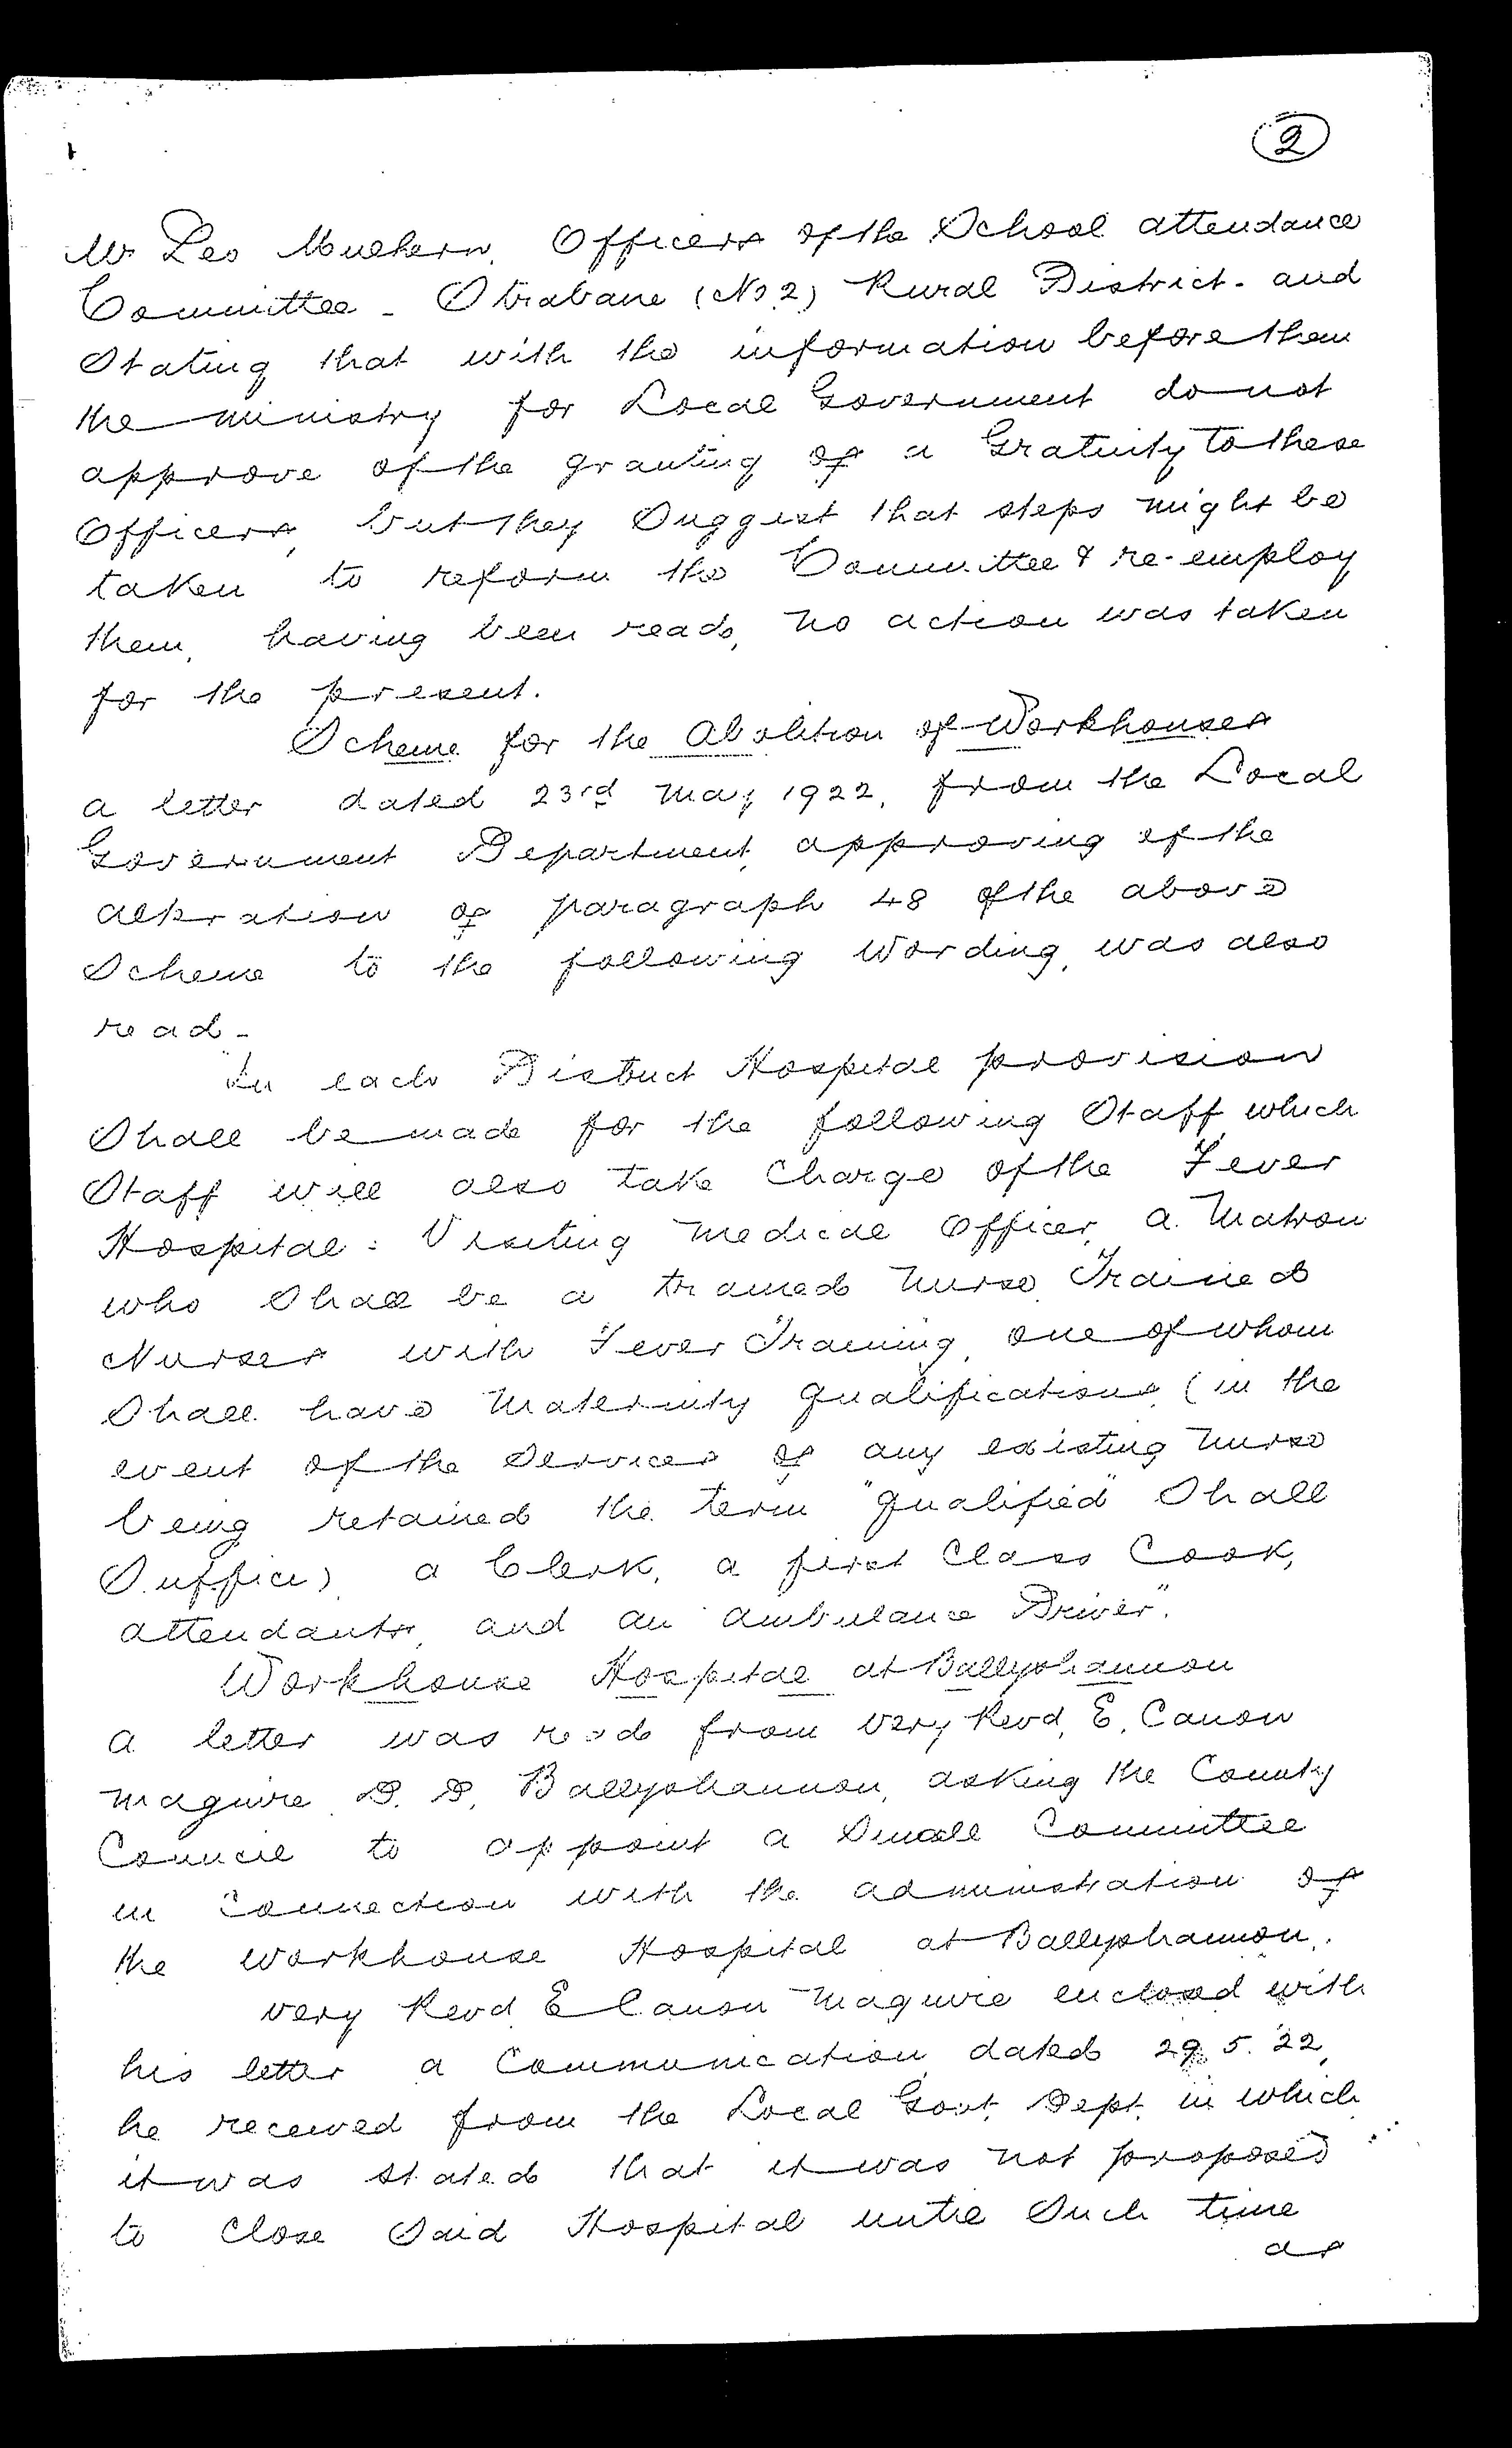 2
Mr Leo Mulhern, Officers of the School attendance
Committee - Strabane (No 2) Rural District - and
Stating that with the information before them
the Ministry for Local Government do not
approve of the granting of a Gratuity to these
Officers, but they Suggest that steps might be
taken to reform the Committee & re-employ
them, having been read, no action was taken
for the present.
Scheme for the Abolition of Workhouses
a letter dated 23rd May 1922, from the Local
Government Department, approving of the
alteration of paragraph 48 of the above
Scheme to the following Wording, was also
read -
"In each District Hospital provision
Shall be made for the following Staff, which
Staff will also take Charge of the Fever
Hospital: Visiting Medical Officer, a Matron
who Shall be a trained Nurse, Trained
Nurses with Fever Training, one of whom
Shall have Maternity Qualifications, (in the
event of the Services of any existing Nurse
being retained the term "qualified" Shall
Suffice), a Clerk, a first Class Cook,
attendants, and an ambulance Driver".
Workhouse Hospital at Ballyshannon
a letter was read from Very Revd, E. Canon
Maguire D. D, Ballyshannon, asking the County
Council to appoint a Small Committee
in Connection with the administration of
the Workhouse Hospital at Ballyshannon.
Very Revd E Canon Maguire enclosed with
his letter a Communication dated 29.5.'22,
he received from the Local Govt. Dept. in which
it was stated that it was not proposed
to Close Said Hospital until Such time
as